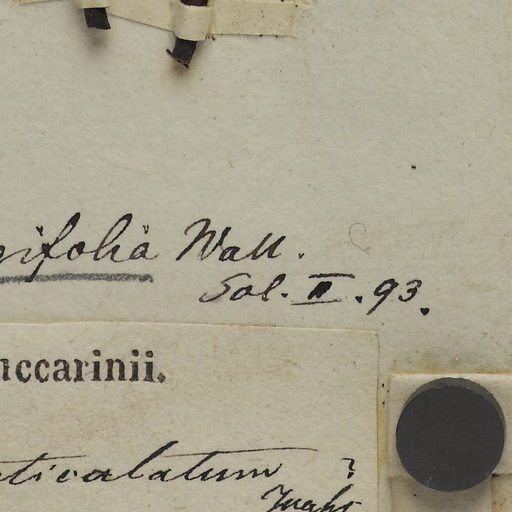 gifolia Wall.
Sol. II. 93.
uccarinii.
ticulatum ?